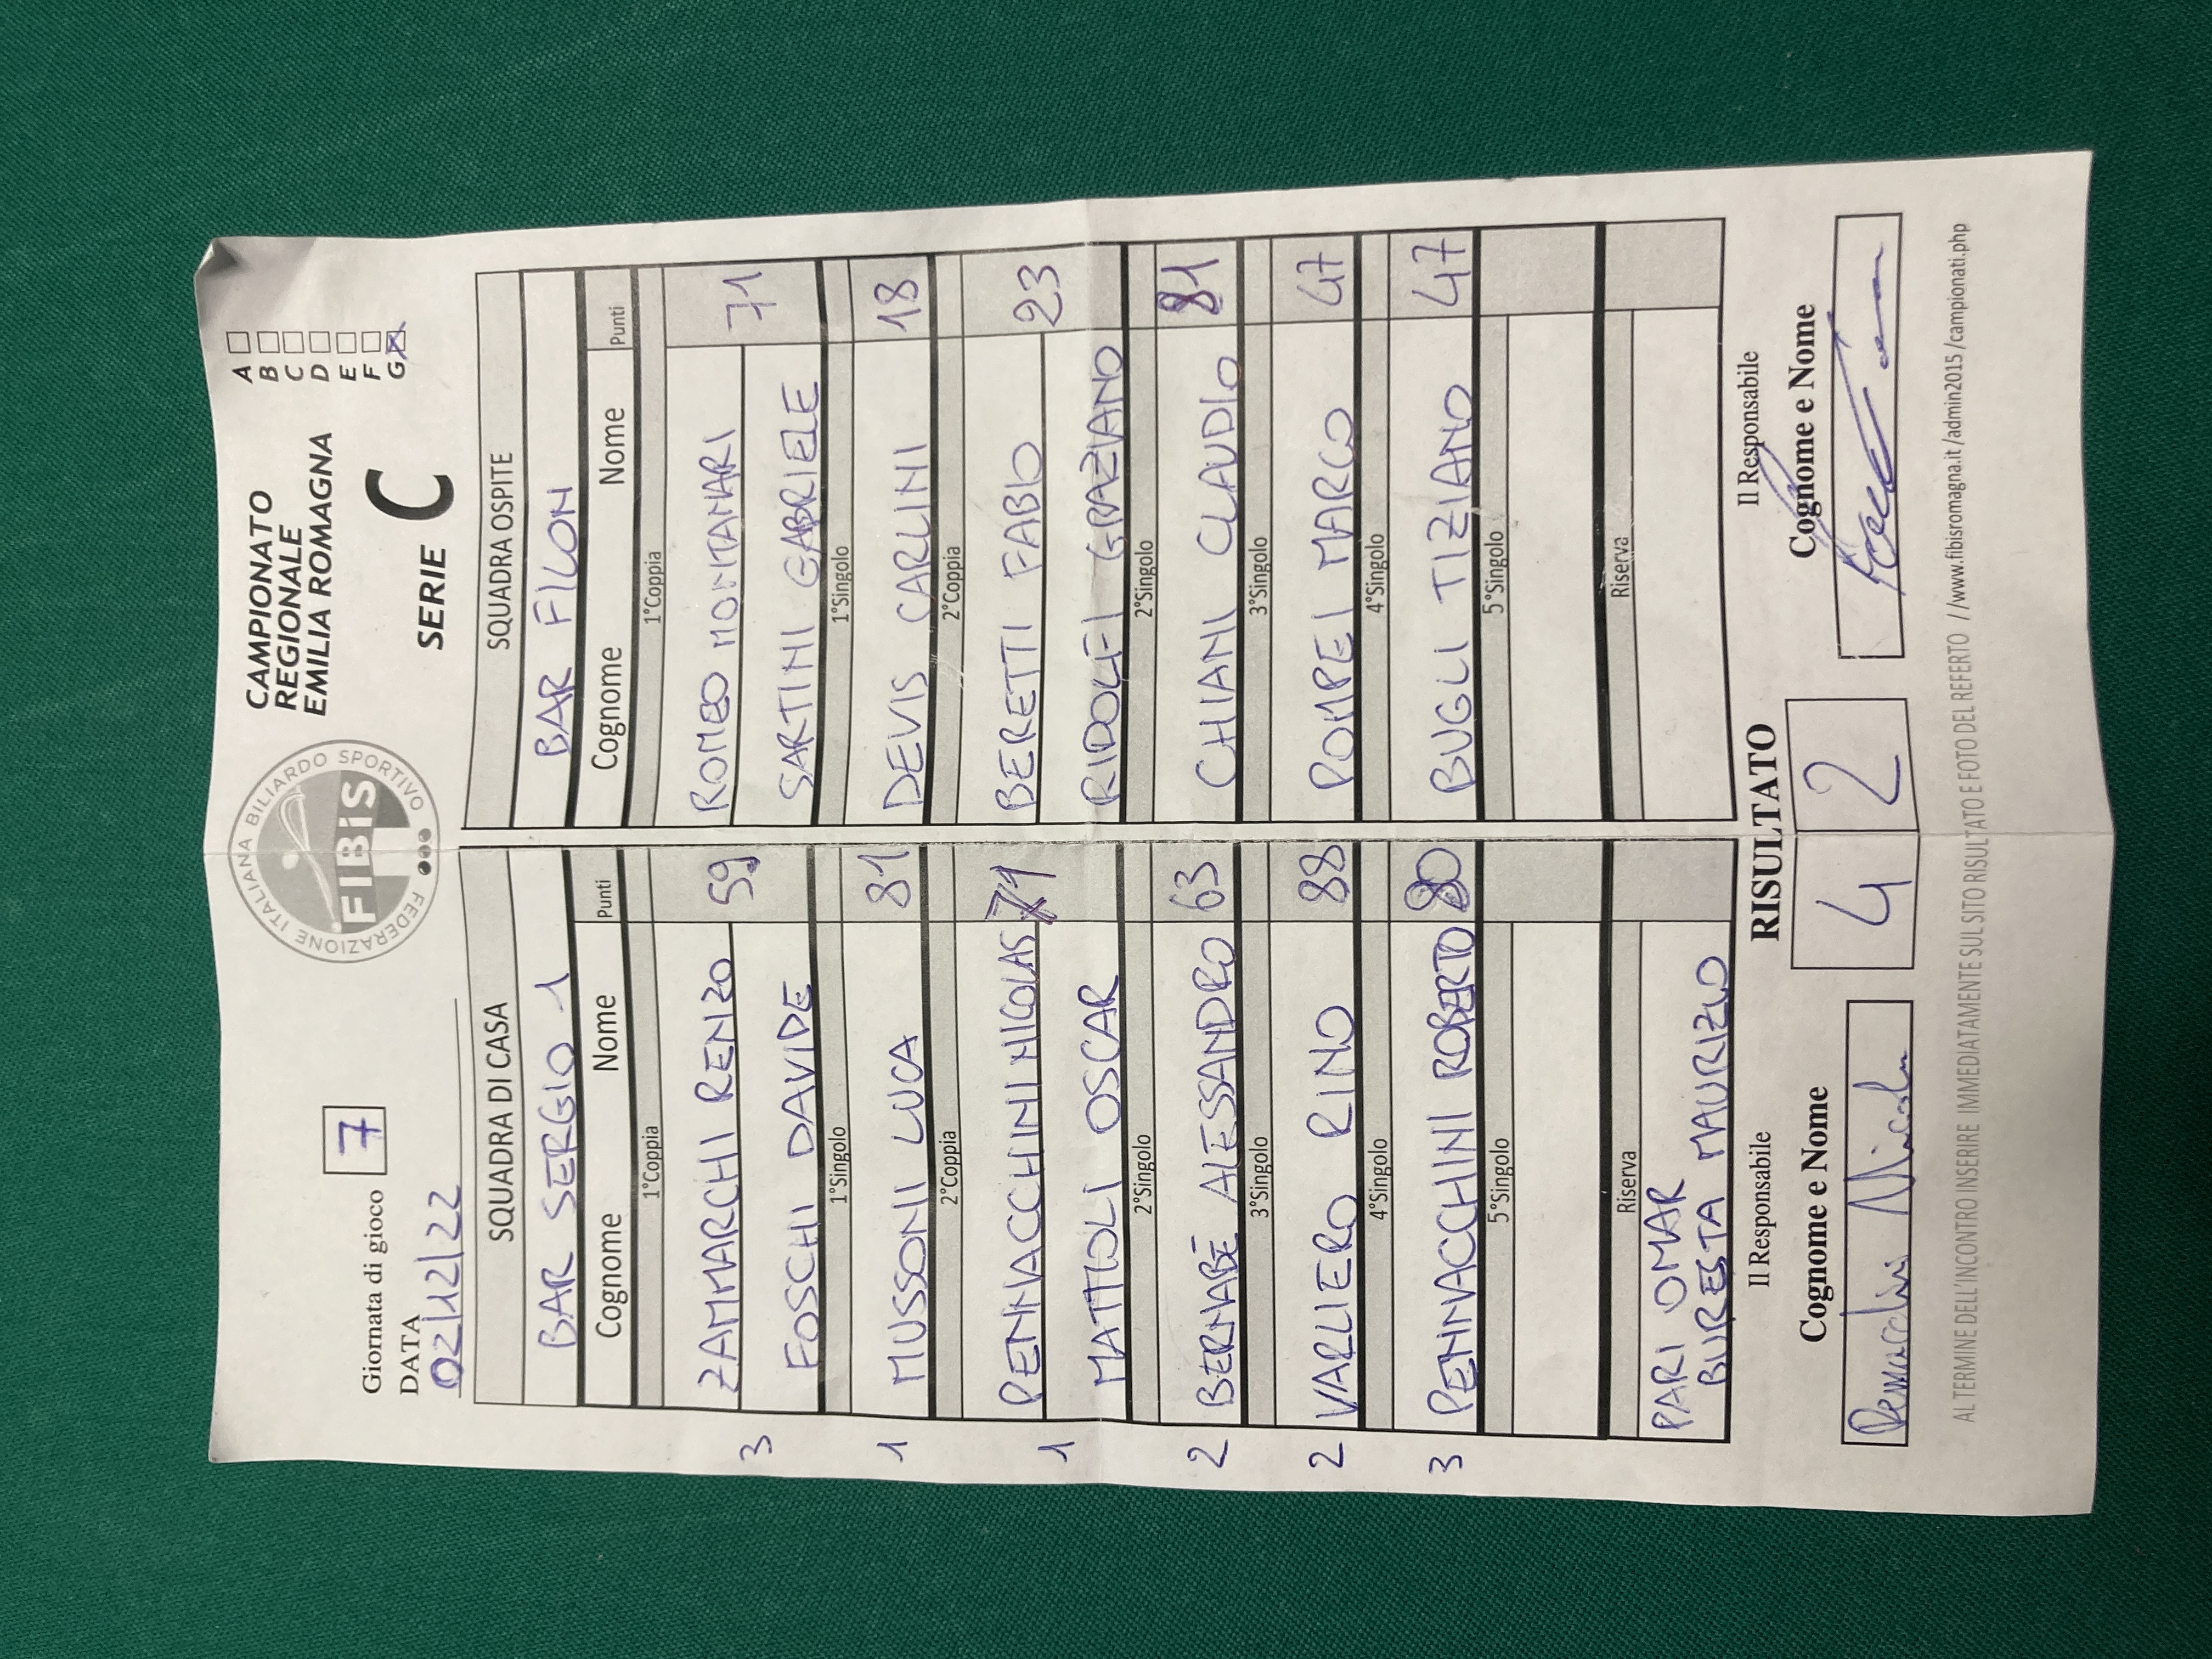 Giornata di gioco 7
DATA
02/12/22
FEDERAZIONE ITALIANA BILIARDO SPORTIVO
FIBiS
CAMPIONATO
REGIONALE
EMILIA ROMAGNA
SERIE C
A
B
C
D
E
F
G X
SQUADRA DI CASA
BAR SERGIO 1
Cognome Nome Punti
1°Coppia
ZAMMARCHI RENZO 59
FOSCHI DAVIDE
3
1°Singolo
MUSSONI LUCA 81
1
2°Coppia
PENNACCHINI NICOLAS 71
MATTIOLI OSCAR
1
2°Singolo
BERNABÈ ALESSANDRO 63
2
3°Singolo
VARLIERO RINO 88
2
4°Singolo
PENNACCHINI ROBERTO 80
3
5°Singolo
Riserva
PARI OMAR
BURESTA MAURIZIO
SQUADRA OSPITE
BAR FILON
Cognome Nome Punti
1°Coppia
ROMEO MONTANARI 71
SARTINI GABRIELE
1°Singolo
DEVIS CARLINI 18
2°Coppia
BERETTI FABIO 23
RIDOLFI GRAZIANO
2°Singolo
CHIANI CLAUDIO 81
3°Singolo
POMPEI MARCO 47
4°Singolo
BUGLI TIZIANO 47
5°Singolo
Riserva
Il Responsabile
Cognome e Nome
Pennacchini Nicolas
RISULTATO
4 2
Il Responsabile
Cognome e Nome
AL TERMINE DELL'INCONTRO INSERIRE IMMEDIATAMENTE SUL SITO RISULTATO E FOTO DEL REFERTO //www.fibisromagna.it/admin2015/campionati.php